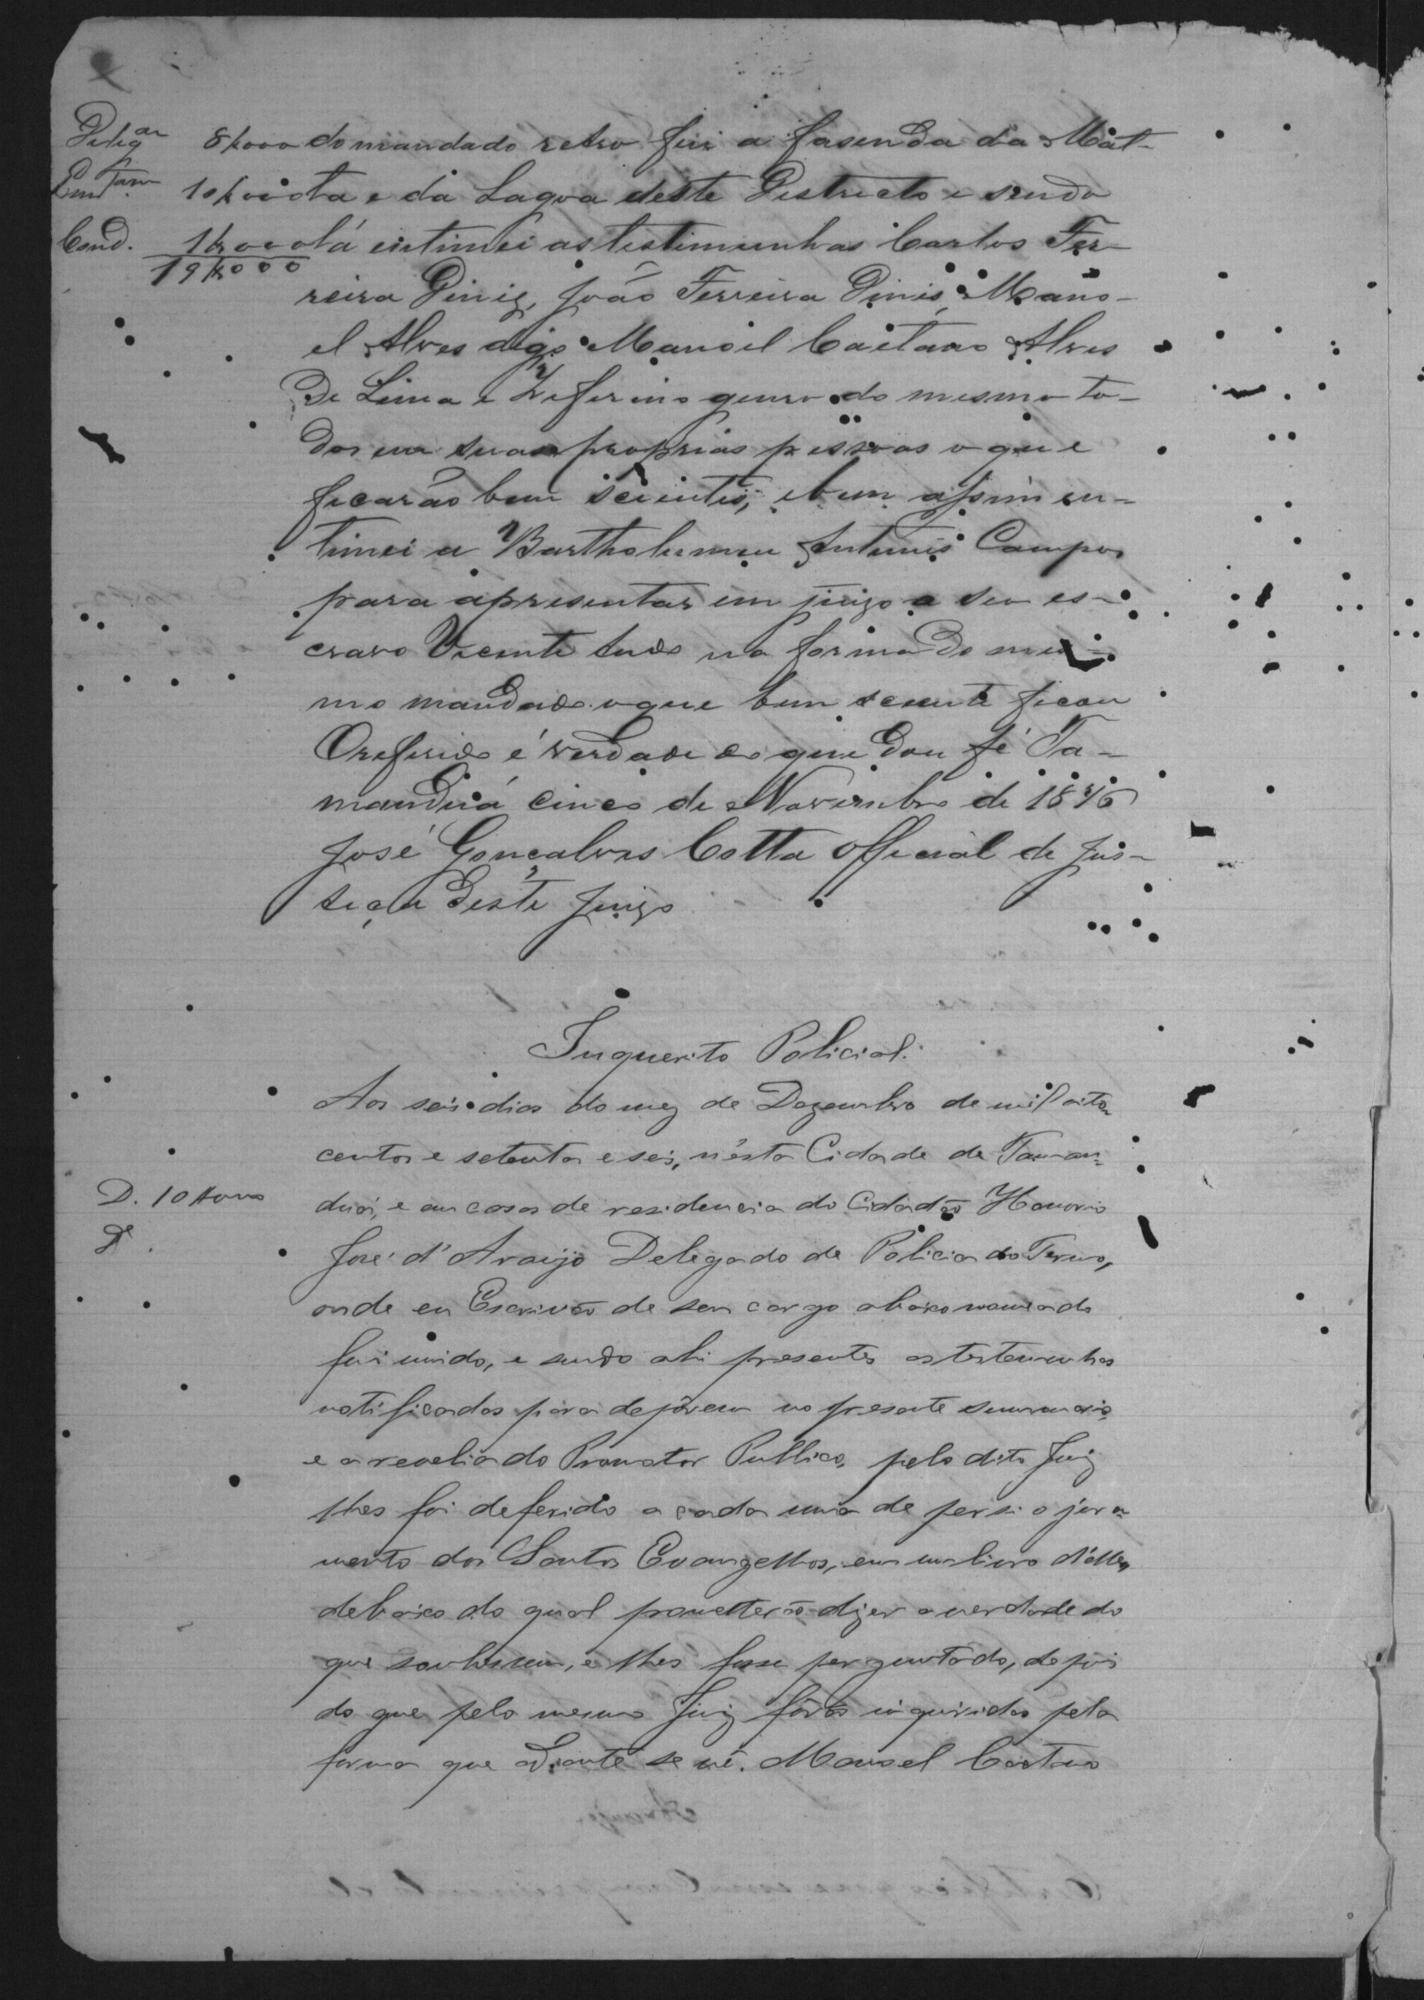 Delig.am 8$000 do mandado retro fui a fasenda da Mat-
Cond. 10$000 ta e da Lagoa deste Destricto e sendo
Cond. 1$000 lá intimei as testimunhas Carlos Fer-
19$000
reira Diniz, João Ferreira Dinis, Mano-
el Alves digo Manoel Caetano Alves
De Lima e Zeferino genro do mesmo to-
dos em suas proprias pessoas o que
ficarão bem scientes, e bem assim in-
timei a Bartholumeu Antunes Campos
para apresentar em juizo o seu es-
cravo Vicente tudo na forma do mes-
mo mandado o que bem sciente ficou
O referido é verdade do que dou fé Ta-
manduá cinco de Novembro de 1876
José Gonçalves Cotta Official de Jus-
tiça deste Juizo
Inquerito Policial.
Aos seis dias do mez de Dezembro de mil oito
centos e setenta e seis, n'esta Cidade de Taman-
duá, e em casas de residencia do Cidadão Honorio
D. 10
José d'Araujo Delegado de Policia do Termo,
onde eu Escrivão de seu cargo abaixo nomeado
fui vindo, e sendo ahi presentes as testemunhas
notificadas para depôrem no presente summario
e a revelia do Promotor Publico, pelo dito Juiz
lhes foi deferido a cada uma de per si o jura-
mento dos Santos Evangelhos, em um livro d'elles
debaixo do qual prometterão dizer a verdade do
que soubessem, e lhes fosse perguntado, depois
do que pelo mesmo Juiz fôrão inquiridas pela
forma que adiante se vê. Manoel Caetano